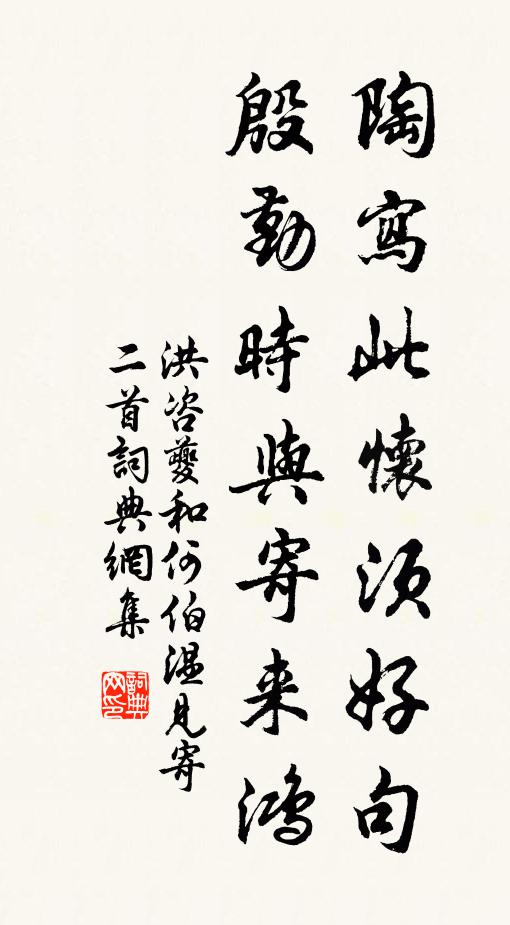 陶寫此懷須好句
殷勤時與寄来鴻
洪咨夔和何伯温見寄
二首詞典網集
詞典
网印